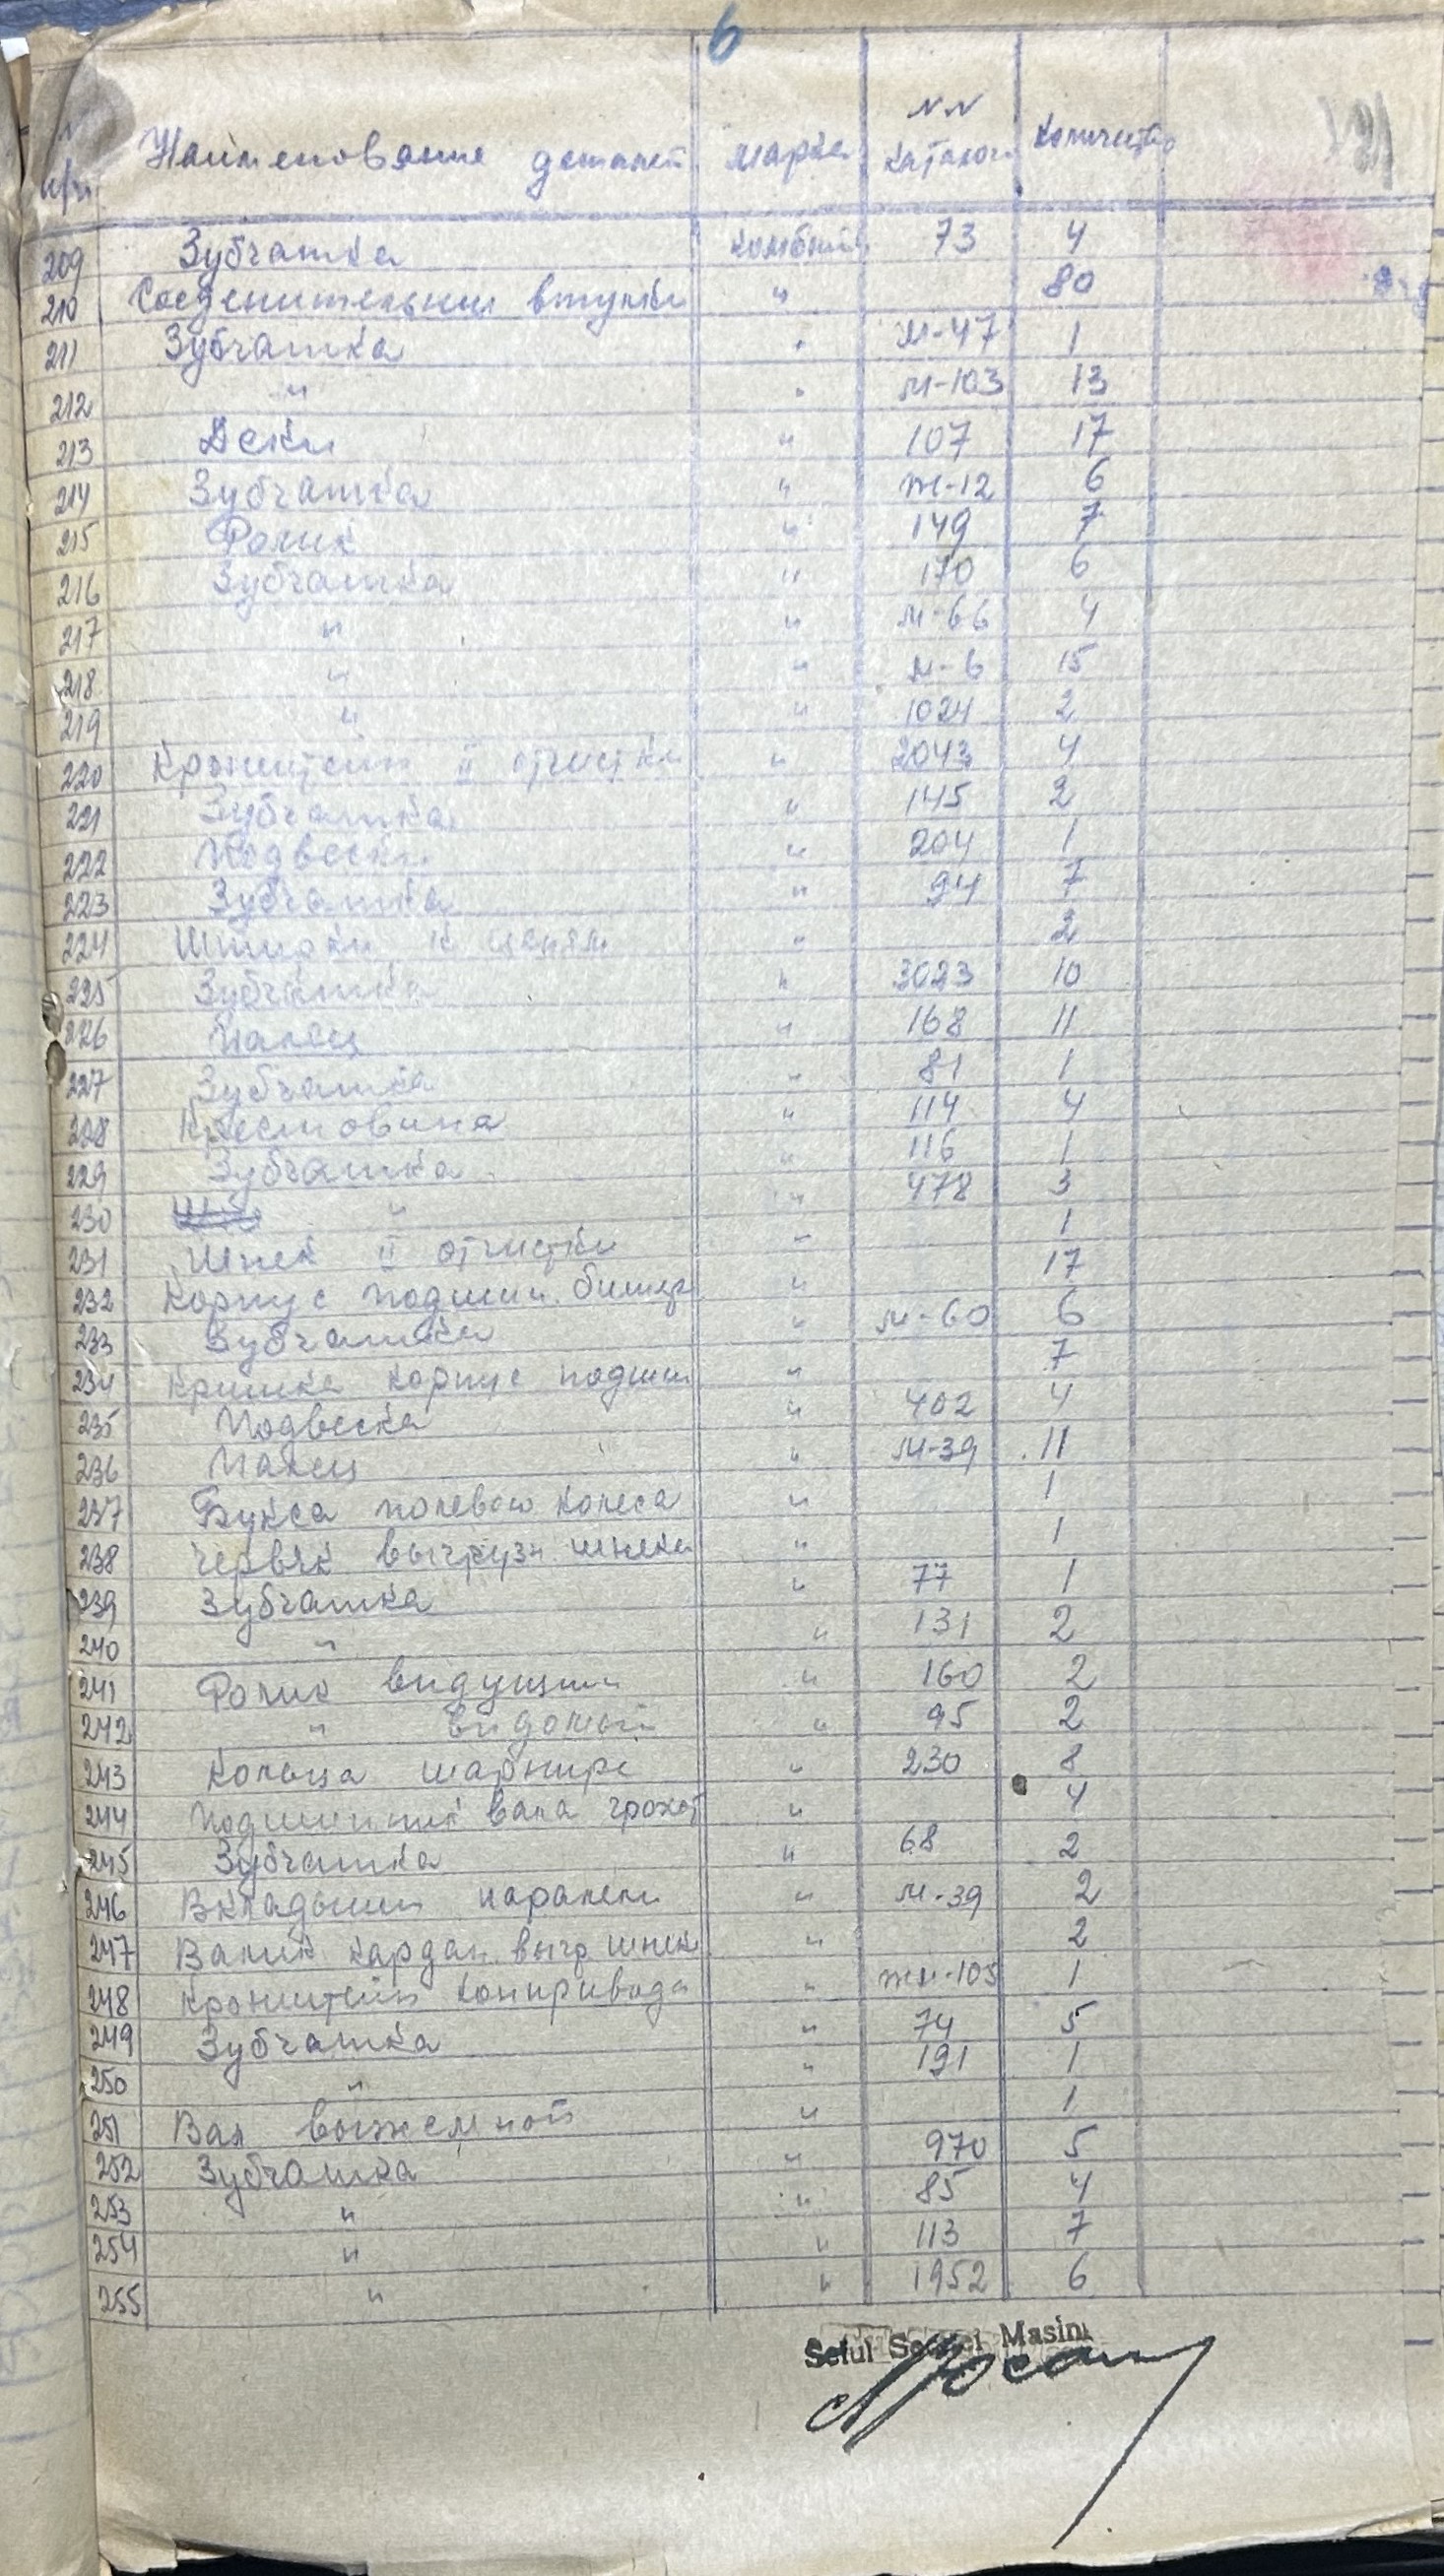 6
N п/п Наименование деталей марка NN каталог количество
209 Зубчатка комбайн 73 4
210 Соединительныи втулки " 80
211 Зубчатка " М-47 1
212 " " М-103 13
213 Деки " 107 17
214 Зубчатка " Ж-12 6
215 Ролик " 149 7
216 Зубчатка " 170 6
217 " " М-66 4
218 " " М-6 15
219 " " 1024 2
220 Кронштейн II отчистки " 2043 4
221 Зубчатка " 145 2
222 Подвески " 204 1
223 Зубчатка " 94 7
224 к цепям " 2
225 Зубчатка " 3023 10
226 Палец " 168 11
227 Зубчатка " 81 1
228 Крестовина " 114 4
229 Зубчатка " 116 1
230 " " 478 3
231 Шнек II отчистки " 1
232 Корпус подшип. битер " 17
233 Зубчатка " М-60 6
234 Кришка корпус подшип " 7
235 Подвеска " 402 4
236 Палец " М-39 11
237 Букса полевого колеса " 1
238 Червяк выгрузн. шнека " 1
239 Зубчатка " 77 1
240 " " 131 2
241 Ролик видущий " 160 2
242 " видомый " 95 2
243 Кольца шарнира " 230 8
244 Подшипник вала грохот " 4
245 Зубчатка " 68 2
246 Вкладыши паралели " М-39 2
247 Валик кардан. выгр. шнек " 2
248 Кронштейн контривода " ЖМ-105 1
249 Зубчатка " 74 5
250 " " 191 1
251 Вал " 1
252 Зубчатка " 970 5
253 " " 85 4
254 " " 113 7
255 " " 1952 6
Seful Masini